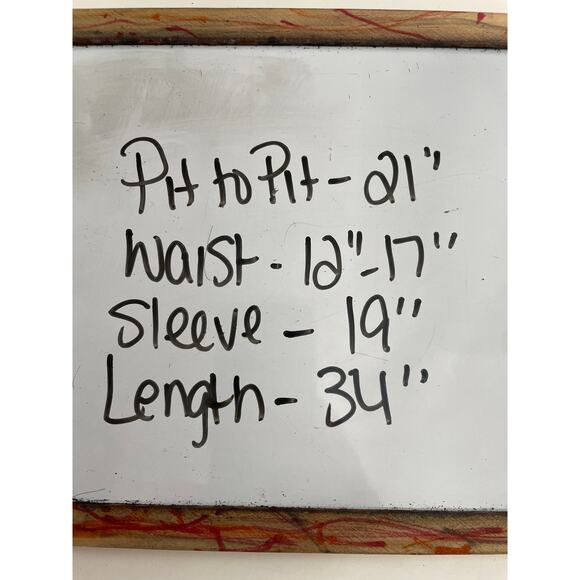 Pit to Pit - 21"
Waist - 12"-17"
Sleeve - 19"
Length - 34"